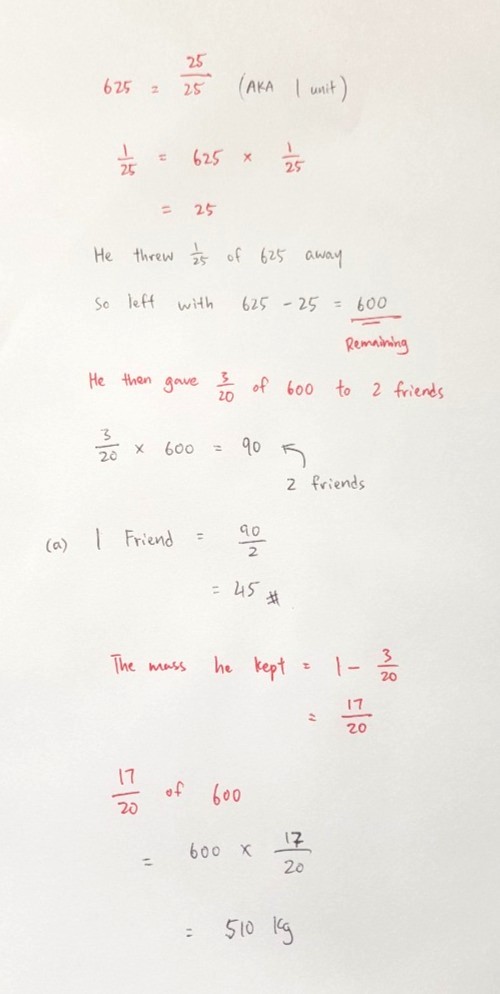 625 = 25/25 (AKA 1 unit)
1/25 = 625 × 1/25
= 25
He threw 1/25 of 625 away
So left with 625 - 25 = 600
Remaining
He then gave 3/20 of 600 to 2 friends
3/20 × 600 = 90
2 friends
(a) 1 Friend = 90/2
= 45 #
The mass he kept = 1 - 3/20
= 17/20
17/20 of 600
= 600 × 17/20
= 510 kg